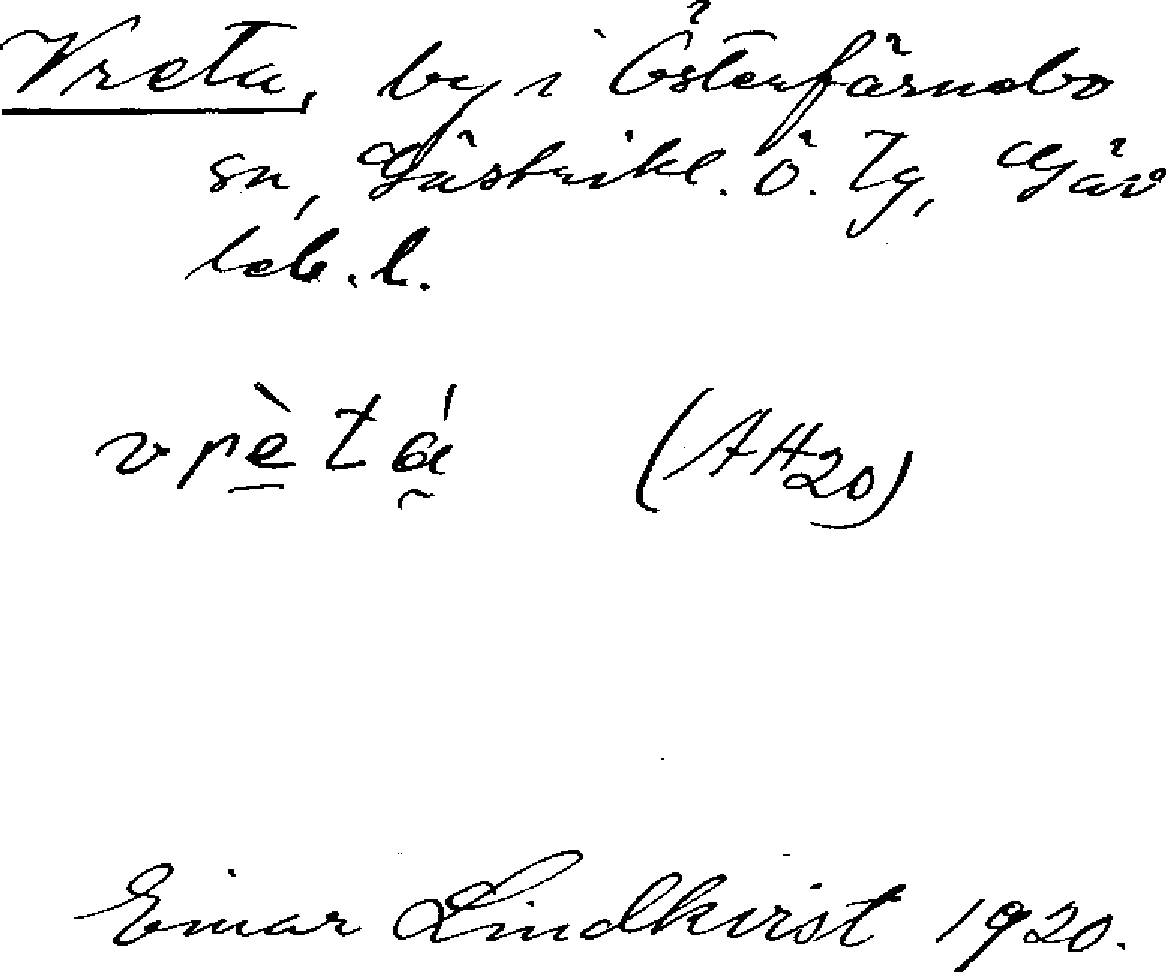 Vreta, by i Österfärnebo
sn, Gästrikl. ö. Tg, Gäv
leb. l.
vrètá (AH20)
Einar Lindkvist 1920.